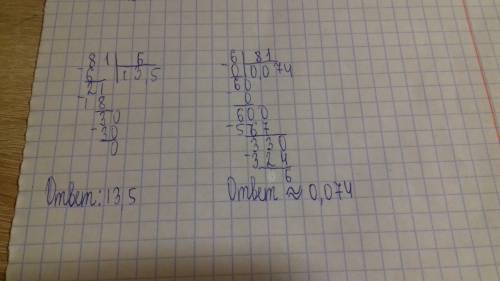 81 | 6
-6 | 13,5
21
-18
30
-30
0
Ответ: 13,5
6 | 81
-0 | 0,074
60
0
600
-567
330
-324
6
Ответ ≈ 0,074